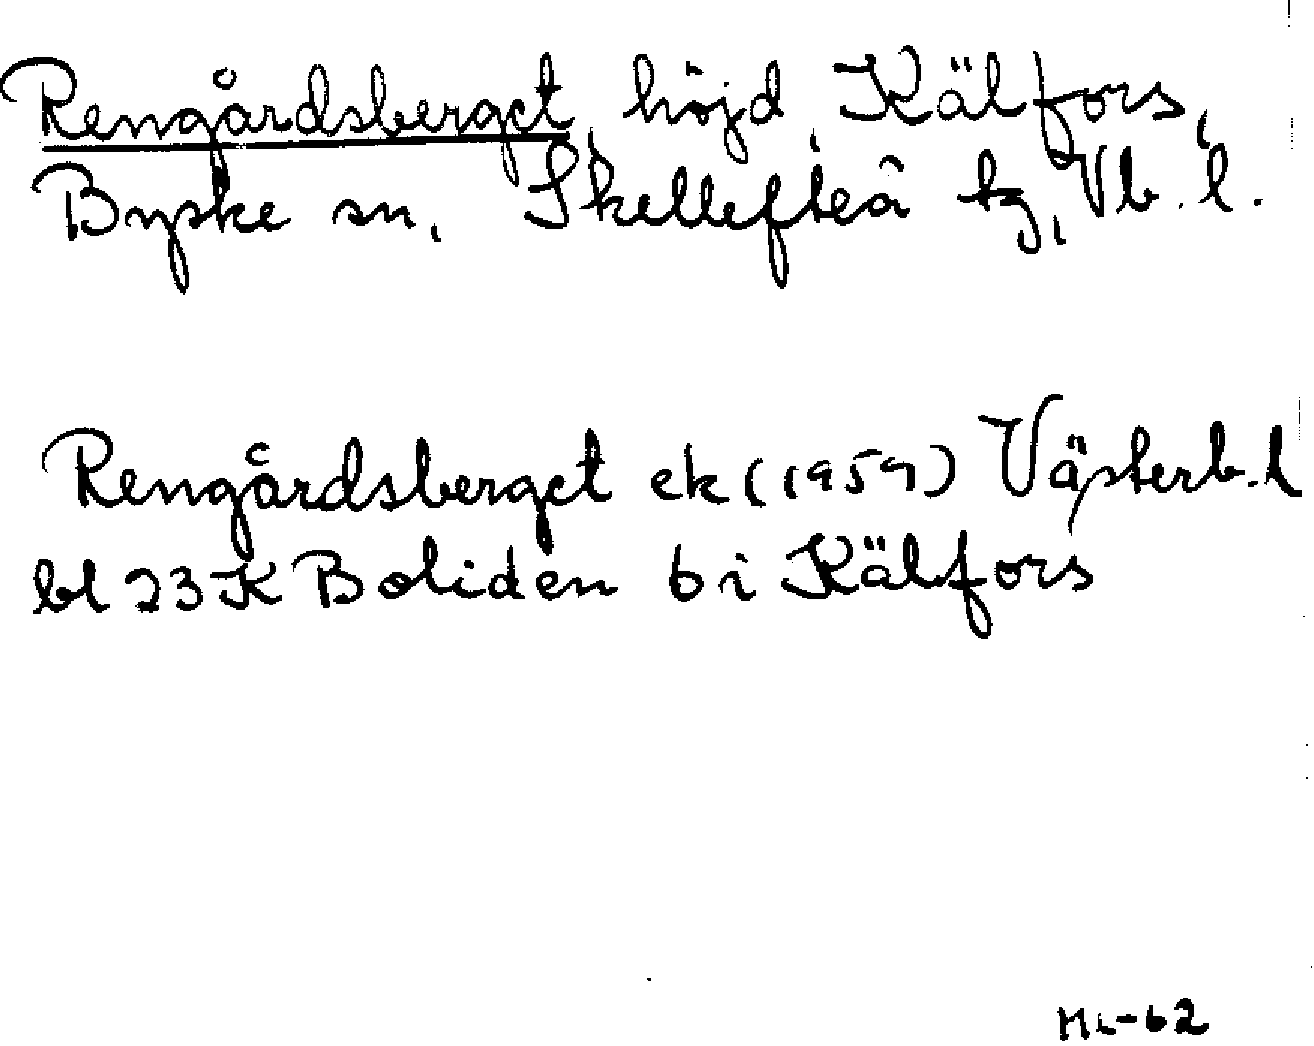 Rengårdsberget, höjd, Kälfors,
Byske sn, Skellefteå tg, Vb. l.
Rengårdsberget ek (1959) Västerb. l
bl 23 K Boliden 6 i Kälfors
ML-62